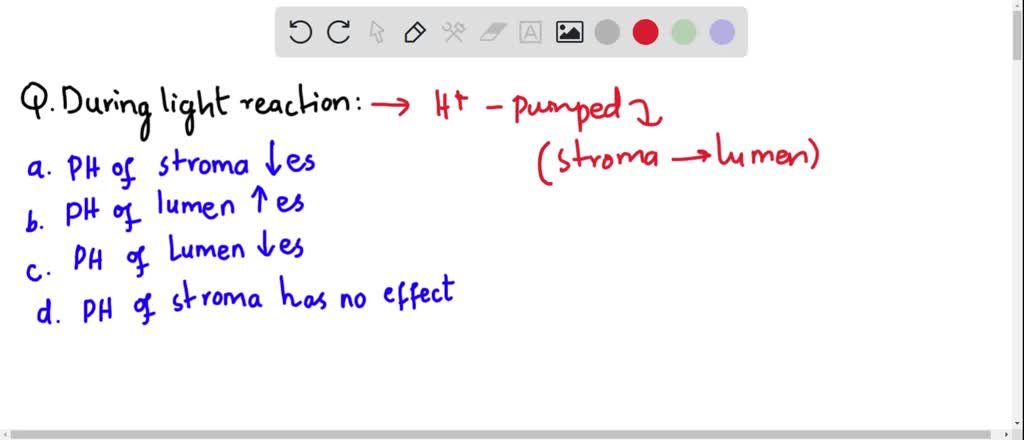 Q. During light reaction: → H+ - pumped
(stroma → lumen)
a. PH of stroma ↓es
b. PH of lumen ↑es
c. PH of Lumen ↓es
d. PH of stroma has no effect